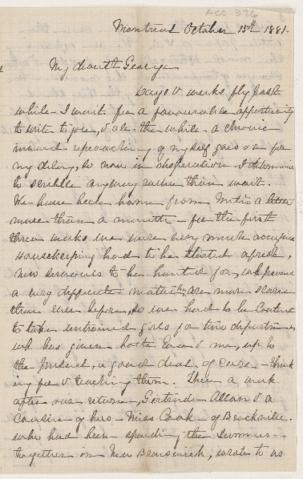 ACC 376
Montreal October 15th 1881.
My dear George
Days & weeks fly past
while I wait for a favourable opportunity
to write to you, & all the while a chronic
inward reproaching of myself goes on for
my delay, so now in desperation I determine
to scribble anyway rather than wait.
We have been home from Metis a little
more than a month - for the first
three weeks we were very much occupied
housekeeping had to be started afresh,
new servants to be hunted for,
a very difficult matter are more scarce
than ever before, so we had to be content
to take untrained girls for two departments
wh. has given both Eva & me, up to
the present, a good deal of care - think
ing for & teaching them. Then a week
after our return, Gertrude Allan & a
cousin of hers - Miss Cook - of Brockville
who had been spending the summer
together in New Brunswick, wrote to us